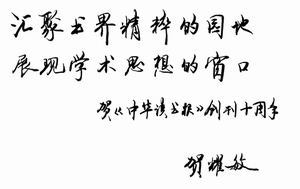 汇聚书界精粹的园地
展现学术思想的窗口
贺《中华读书报》创刊十周年
贺耀敏